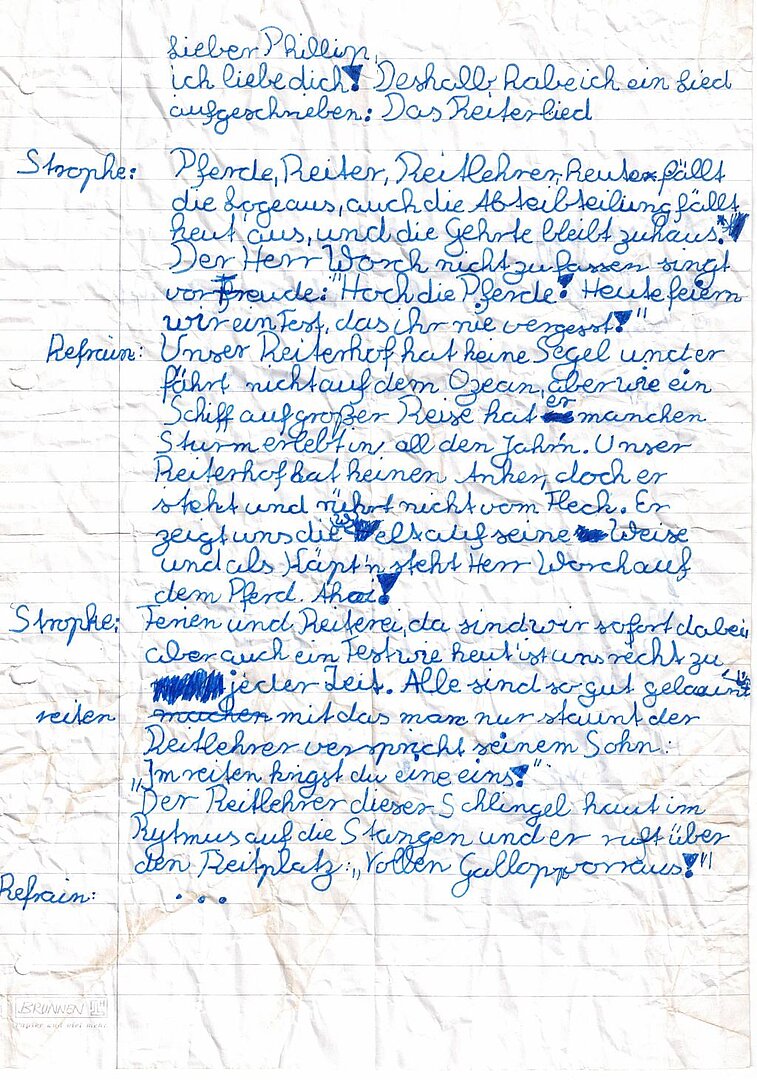 Lieber Phillip,
ich liebe dich! Deshalb habe ich ein Lied
aufgeschrieben: Das Reiterlied
Strophe: Pferde, Reiter, Reitlehrer, heute fällt
die Logeaus, auch die Abteibteilung fällt
heut aus, und die Gehrte bleibt zuhaus.
Der Herr Worch nicht zu fassen singt
vor Freude: "Hoch die Pferde! Heute feiern
wir ein Fest, das ihr nie vergesst!"
Refrain: Unser Reiterhof hat keine Segel und er
fährt nicht auf dem Ozean, aber wie ein
Schiff auf großer Reise hat er manchen
Sturm erlebt in all den Jahr'n. Unser
Reiterhof hat keinen Anker, doch er
steht und rührt nicht vom Fleck. Er
zeigt uns die Welt auf seine Weise
und als Käpt'n steht Herr Worch auf
dem Pferd. Ahoi!
Strophe: Ferien und Reiterei, da sind wir sofort dabei,
aber auch ein Fest wie heut ist uns recht zu
jeder Zeit. Alle sind so gut gelaunt
reiten machen mit das man nur staunt der
Reitlehrer verspricht seinem Sohn:
„Im reiten krigst du eine eins!"
Der Reitlehrer dieser Schlingel haut im
Rytmus auf die Stangen und er ruft über
den Reitplatz: „Vollen Galopp vorraus!"
Refrain: ...
BRUNNEN
Papier und viel mehr.